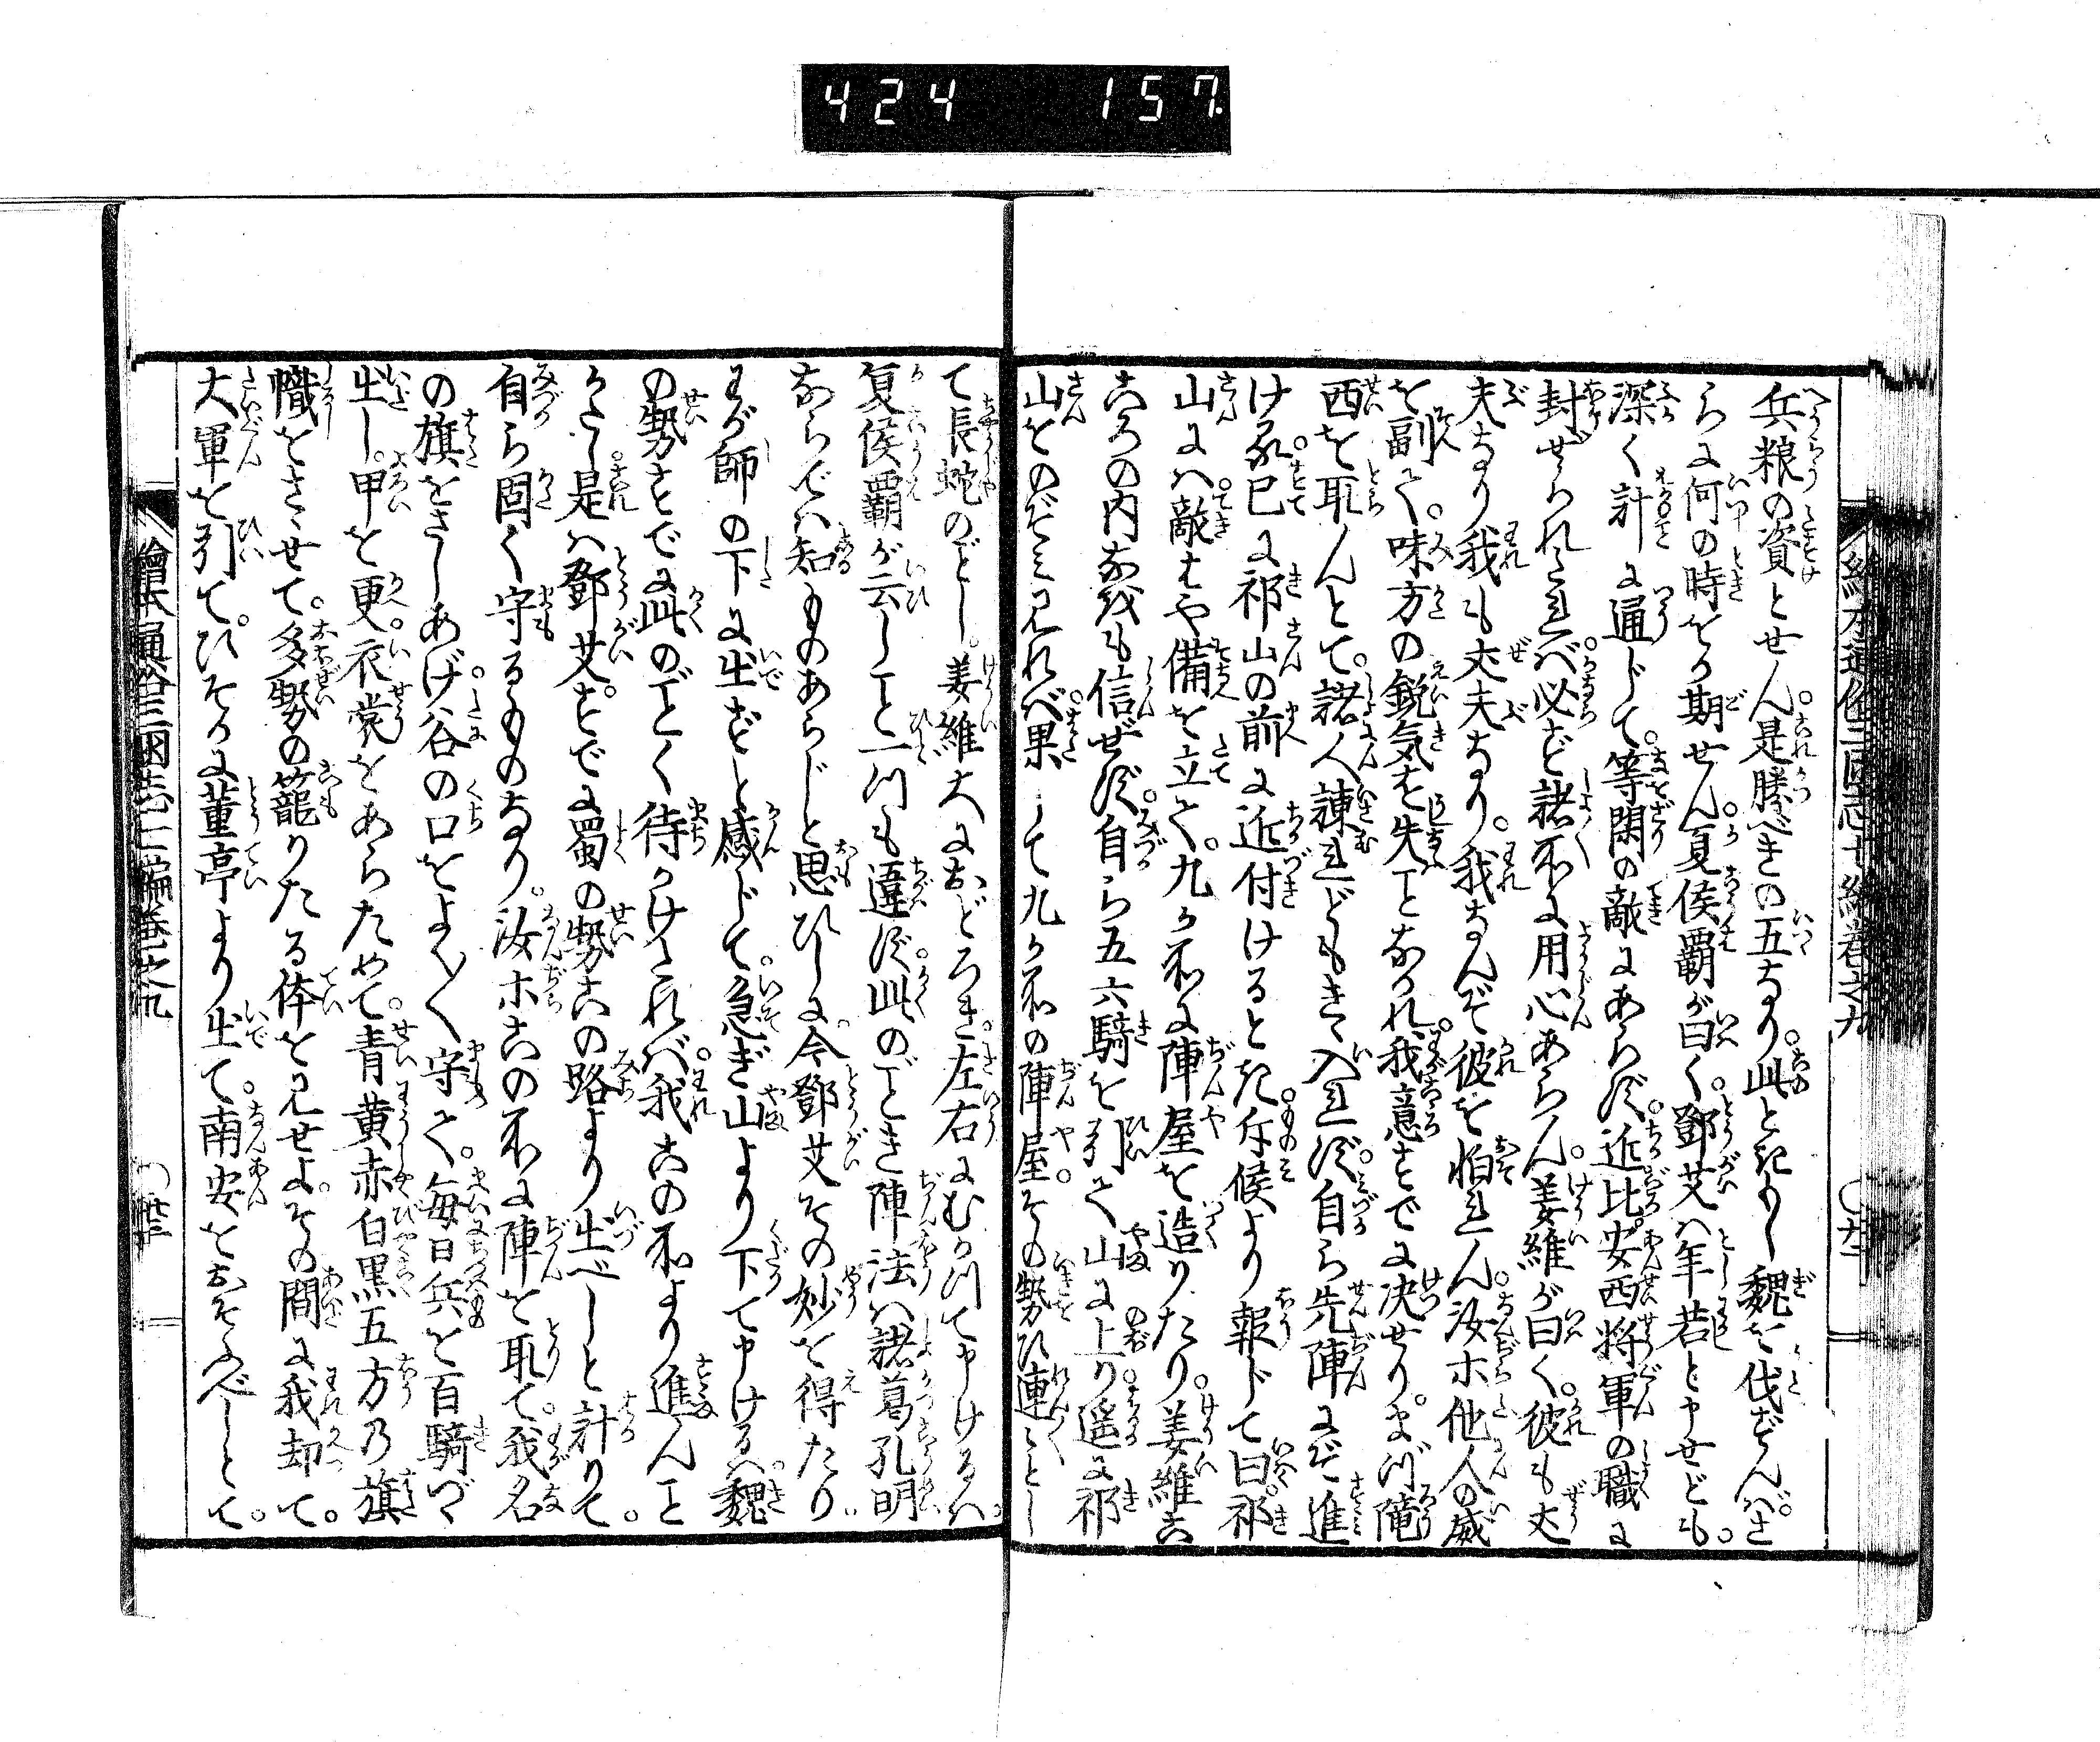 424 157
兵粮の資とせん是勝べきの五なり此とき魏を伐ずんばさ
らに何の時をか期せん夏侯覇が曰く鄧艾ハ年若と申せども
深く計に通じて等閑の敵にあらず近比安西将軍の職に
封ぜられたれバ必ず諸所に用心あらん姜維が曰く彼も丈
夫なり我も丈夫なり我なんぞ彼を怕れん汝ホ他人の威
を副て味方の鋭気を失ことなかれ我意すでに決せりまづ隴
西を取んとて諸人諫れどもきゝ入れず自ら先陣にぞ進
ける已に祁山の前に近付けるとき斥候より報じて曰祁
山にハ敵はや備を立て九ケ所に陣屋を造りたり姜維こ
ころの内なをも信ぜず自ら五六騎を引て山に上り遥に祁
山をのぞミ見れバ果して九ケ所の陣屋その勢ひ連〻とし
て長蛇のごとし姜維大におどろき左右にむかつて申けるハ
夏侯覇が云しこと一つも違ず此のごとき陣法ハ諸葛孔明
ならでハ知ものあらじと思ひしに今鄧艾その妙を得たり
わが師の下に出ずと感じて急ぎ山より下て申けるハ魏
の勢すでに此のごとく待かけたれバ我この所より進んこと
かたし是ハ鄧艾すでに蜀の勢この路より出べしと計りて
自ら固く守るものなり汝ホこの所に陣を取て我名
の旗をさしあげ谷の口をよく〱守て毎日兵を百騎づゝ
出し甲を更衣裳をあらためて青黄赤白黒五方乃旗
幟をさゝせて多勢の籠りたる体を見せよその間に我却て
大軍を引てひそかに董亭より出て南安をおそふべしとて
繪本通俗三國志七編巻之九